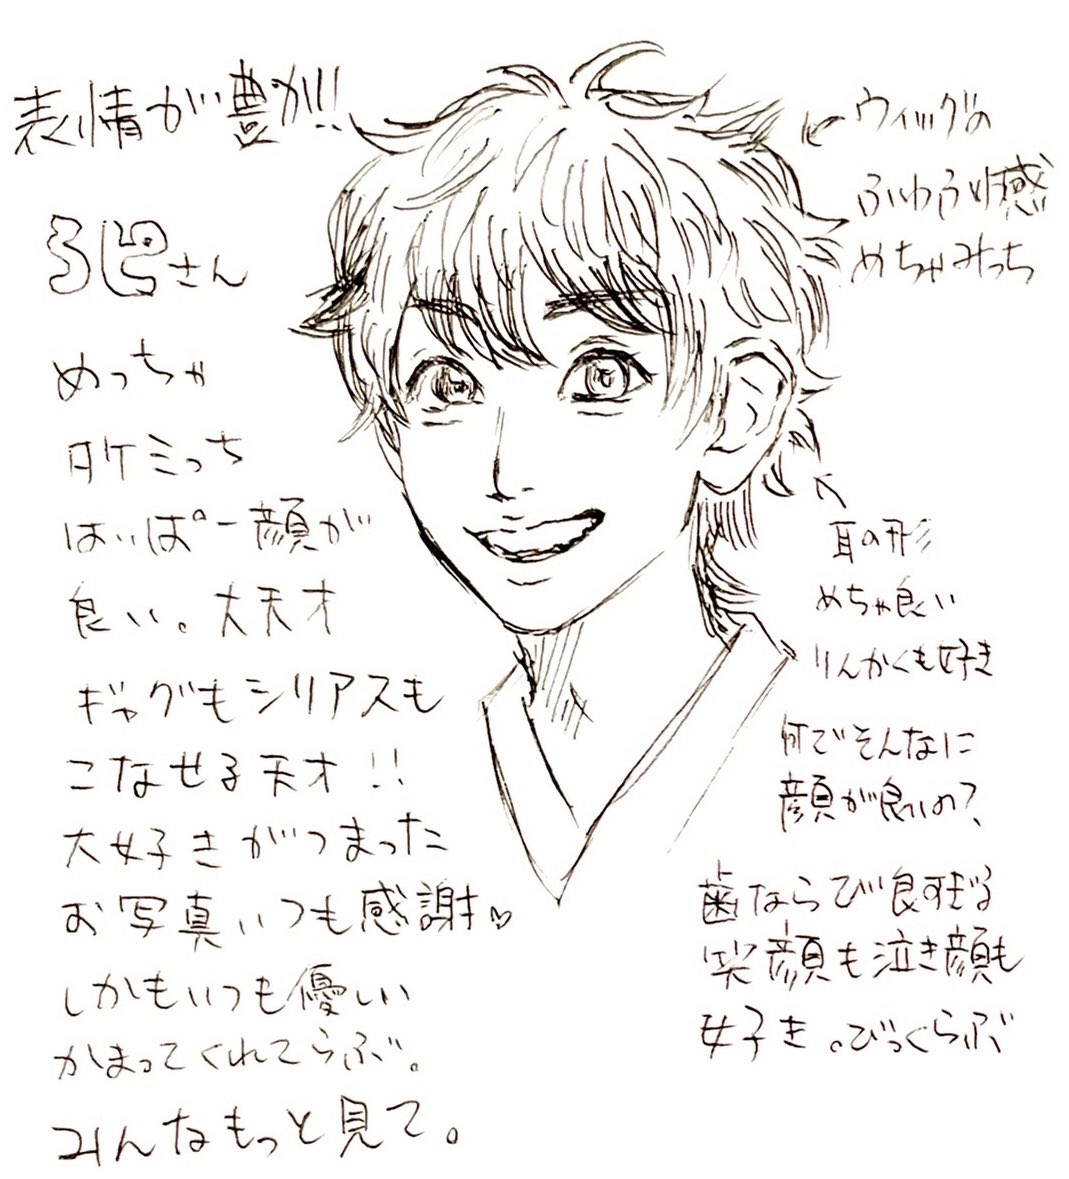 表情が豊か!!
さん
めっちゃ
タケミっち
はいぱー顔が
良い。大天才
ギャグもシリアスも
こなせる天才!!
大好きがつまった
お写真いつも感謝♡
しかもいつも優しい
かまってくれてらぶ。
みんなもっと見て。
ウィッグの
ふわふわ感
めちゃみっち
耳の形
めちゃ良い
りんかくも好き
何でそんなに
顔が良いの?
歯ならび良すぎる
笑顔も泣き顔も
好き。びっくらぶ